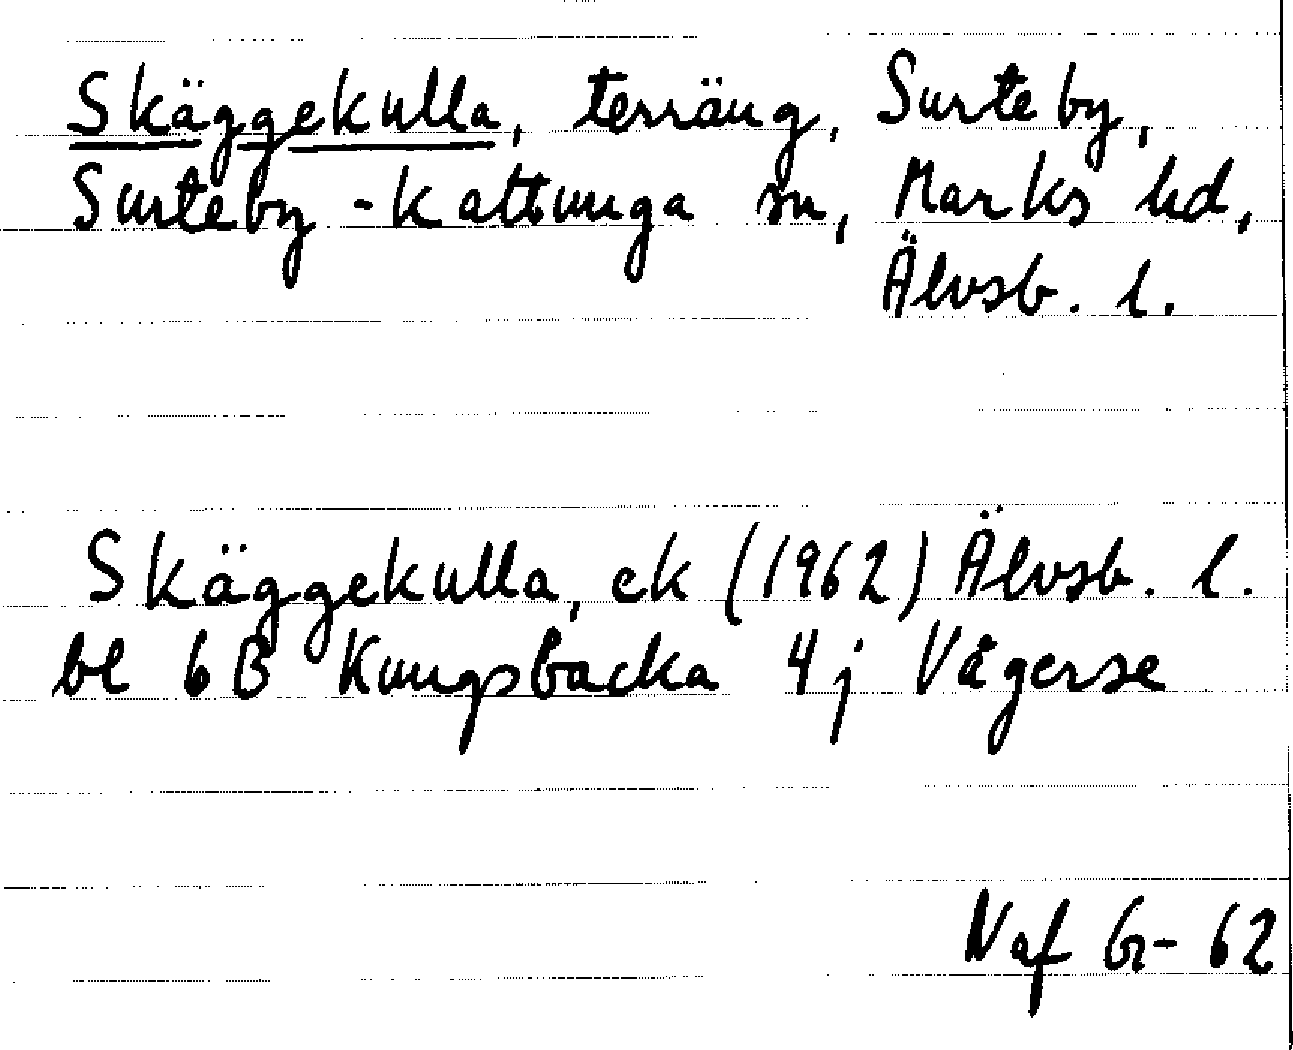 Skäggekulla, terräng, Surteby,
Surteby-Kattunga sn, Marks hd,
Älvsb. l.
Skäggekulla, ek (1962) Älvsb. l.
bl 6B Kungsbacka 4j Vägerse
Naf Gr-62